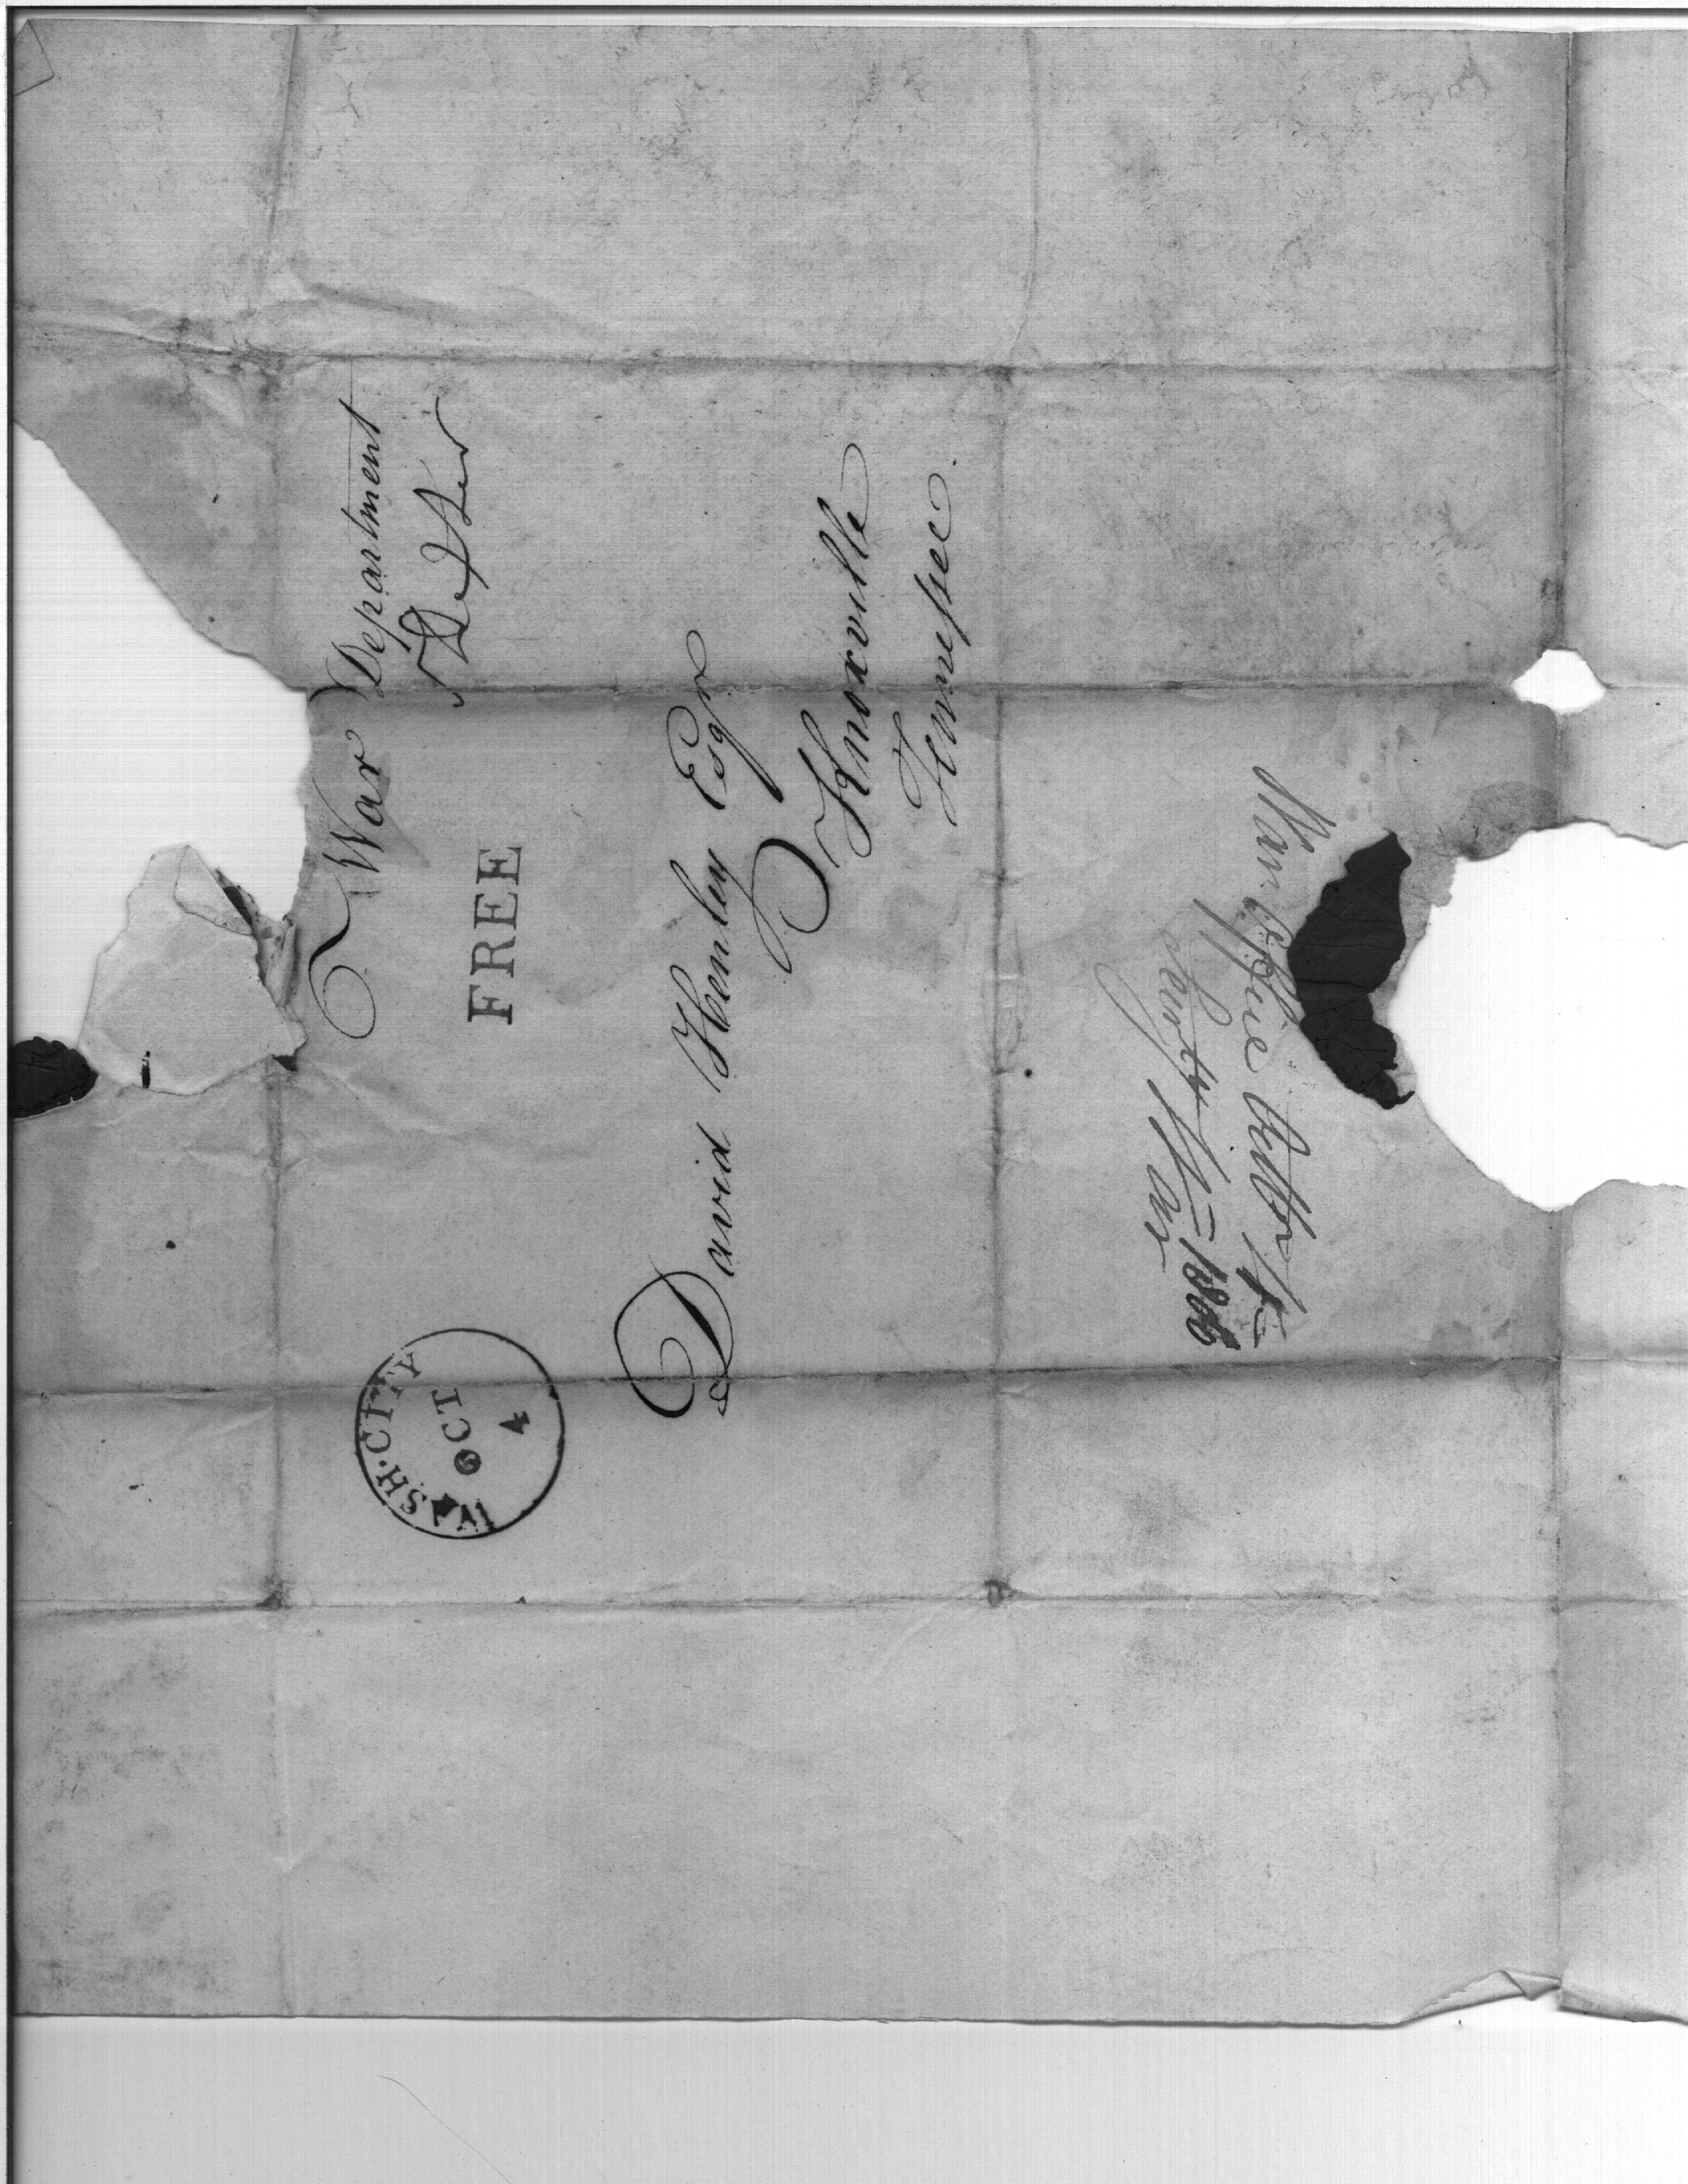 War Department
S Dexter
FREE
WASH. CITY
OCT
4
David Henley Esqr.
Knoxville
Tennessee.
War Office Octbr 4
1800
Secrty War